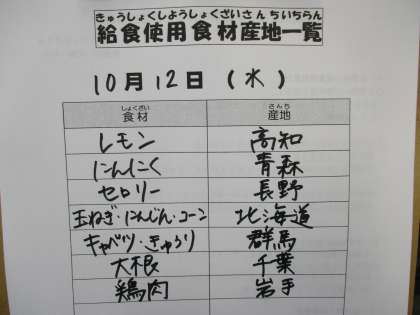 きゅうしょくしようしょくざいさんちいちらん
給食使用食材産地一覧
10月12日(水)
しょくざい さんち
食材 産地
レモン 高知
にんにく 青森
セロリー 長野
玉ねぎ・にんじん・コーン 北海道
キャベツ・きゅうり 群馬
大根 千葉
鶏肉 岩手